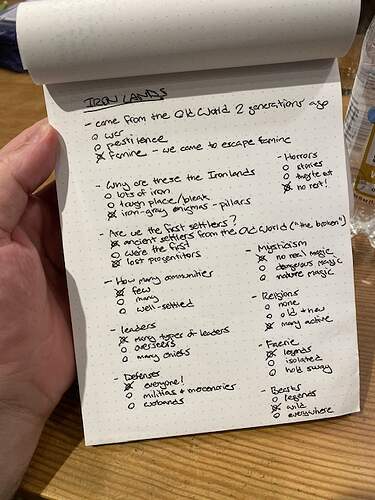 IRONLANDS
- came from the Old World 2 generations ago
○ war
○ pestilence
⊗ famine - we came to escape famine
- Why are these the Ironlands
○ lots of iron
○ tough place/bleak
⊗ iron-gray enigmas - pillars
- Are we the first settlers?
⊗ ancient settlers from the Old World ("the broken")
○ were the first
⊗ lost progenitors
- How many communities
⊗ few
○ many
○ well-settled
- leaders
⊗ many types of leaders
○ overseers
○ many chiefs
- Defenses
⊗ everyone!
○ militias + mercenaries
○ warbands
- Horrors
○ stories
○ they're out
⊗ no rest!
- Mysticism
⊗ no real magic
○ dangerous magic
○ nature magic
- Religions
○ none
○ old + new
⊗ many active
- Faerie
⊗ legends
○ isolated
○ hold sway
- Beasts
○ legends
⊗ wild
○ everywhere